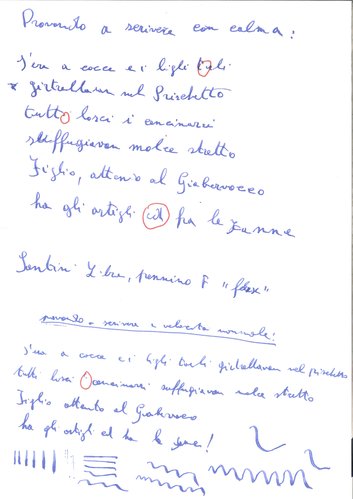 Provando a scrivere con calma:
s'era a cocce e i ligli tarli
girtrellavan nel Prischetto
tutto losci i cencinarri
suffugiavan molce stretto
Figlio, attenio al Giabervocco
ha gli artigli ed ha le zanne
Santini Libra, pennino F "flex"
provando a scrivere a velocità normale:
s'era a cocce e i ligli tarli girtrellavan nel prischetto
tutti losci i cencinarri suffugiavan molce stretto
Figlio attento al Giabervocco
ha gli artigli ed ha le zanne!